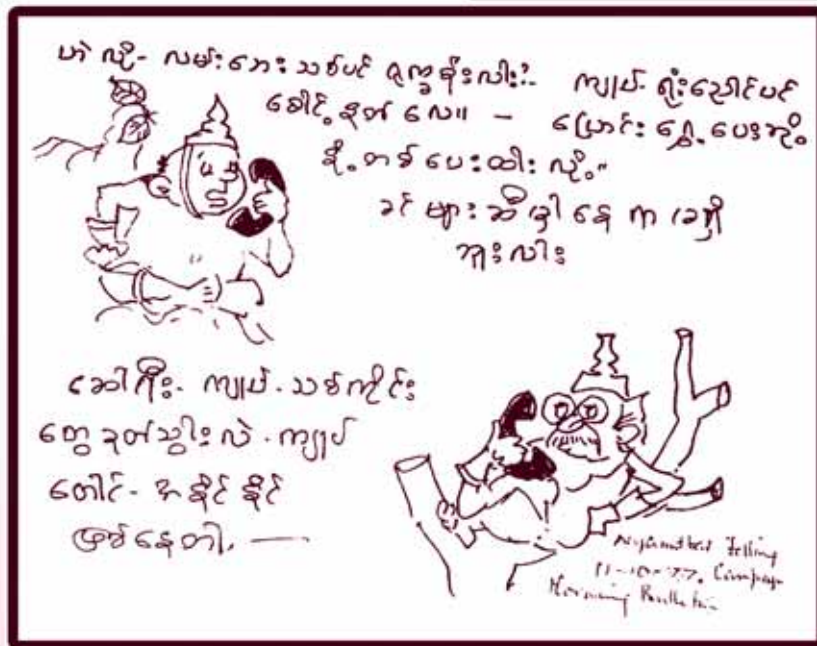 ဟဲ လို- လမ်းဘေး သစ်ပင် ရုက္ခစိုးလား?- ကျုပ်- ရုံးညောင်ပင်
စောင့် နတ် လေ။ — ပြောင်း ရွှေ့ ပေးဘို့
နို့ တစ် ပေးထါး လို့"
ခင် များ ဆီ ခွါ နေ ကာ ခရှိ
ဘူးလါး
ဆေါရီး- ကျုပ်- သစ်ကိုင်း
တွေ ခုတ်သွါးလဲ- ကျုပ်
တောင်- အနိုင် နိုင်
ဖြစ်နေတါ. —
Felling
11-10-77. Campaign
Morning Bulletin